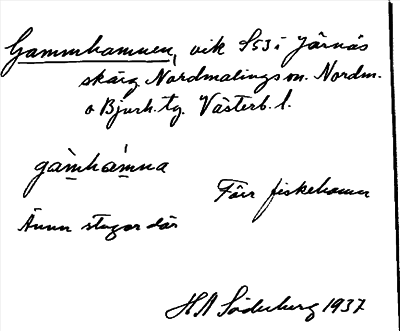 Gammhamnen, vik S53 i Järnäs
skärg. Nordmalings sn. Nordm.
o Bjurh. tg. Västerb. l.
gàmhámna
Förr fiskehamn
Ännu stugor där
HA Söderberg 1937